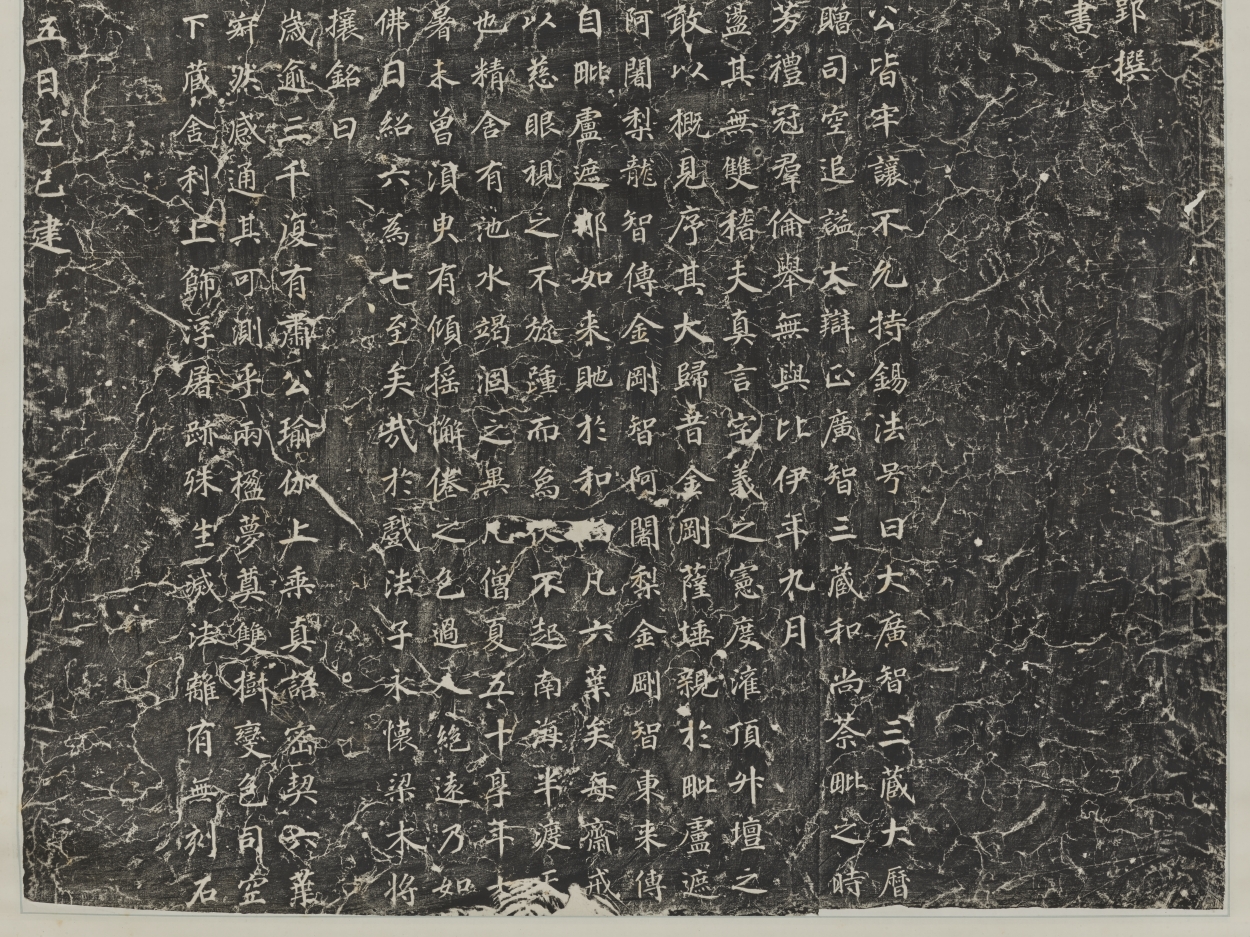 郢撰
書
公皆牢讓不允特錫法号曰大廣智三藏大曆
贈司空追謚大辯正廣智三藏和尚荼毗之時
芳禮冠羣倫舉無與比伊年九月
盪其無雙稽夫真言字義之憲度灌頂升壇之
敢以概見序其大歸昔金剛薩埵親於毗盧遮
阿闍梨龍智傳金剛智阿闍梨金剛智東来傳
自毗盧遮那如来貤於和尚凡六葉矣每齋戒
以慈眼視之不旋踵而為伏不起南海半渡天
也精舍有池水竭涸之異凡僧夏五十享年七
暑未曾須臾有傾揺懈倦之色過人絶遠乃如
佛日紹六為七至矣㦲於戲法子永懷梁木将
攘銘曰
歲逾三千復有肅公瑜伽上乘真語密契六葉
寂然感通其可測乎兩楹夢奠雙樹變色司空
下藏舍利上飾浮屠跡殊生滅法離有無刻石
五日乙巳建